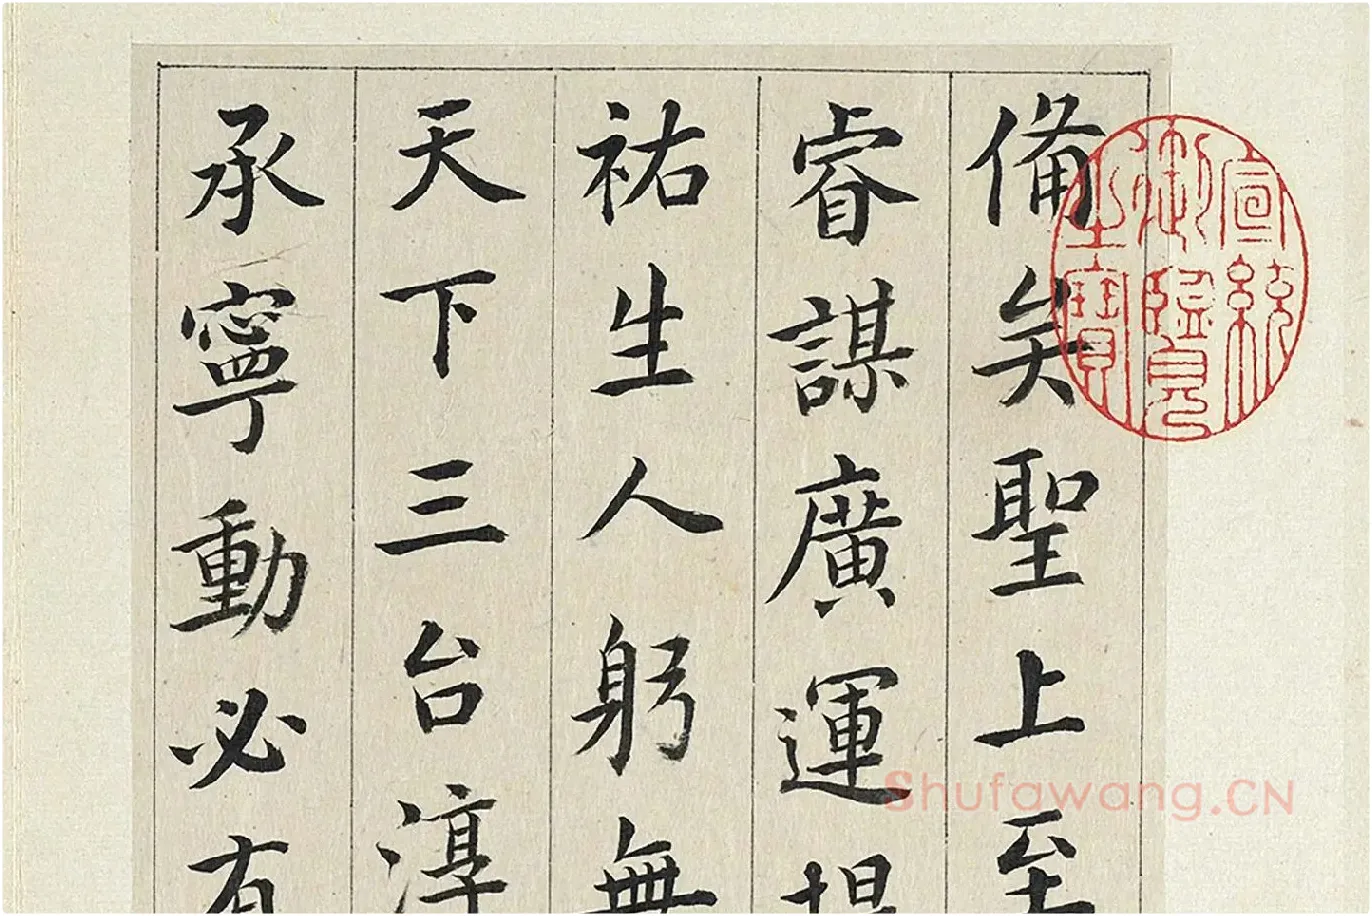 備矣聖上至
睿謀廣運
祐生人躬無
天下三台淳
承寧動必有
宣統御覽之寶
Shufawang.CN